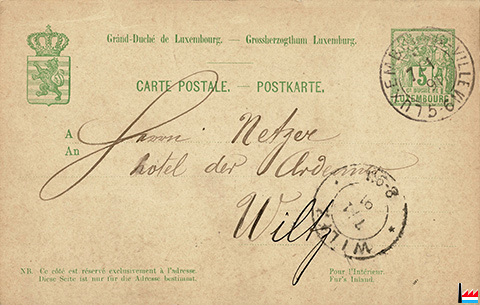 Grand-Duché de Luxembourg. — Grossherzogthum Luxemburg.
CARTE POSTALE. — POSTKARTE.
5
LUXEMBOURG
LUXEMBOURG-VILLE
5-6
A
An
Herrn Netzer
hotel der Ardennen
Wiltz
WILTZ
NB. Ce côté est réservé exclusivement à l'adresse.
Diese Seite ist nur für die Adresse bestimmt.
Pour l'intérieur.
Für's Inland.